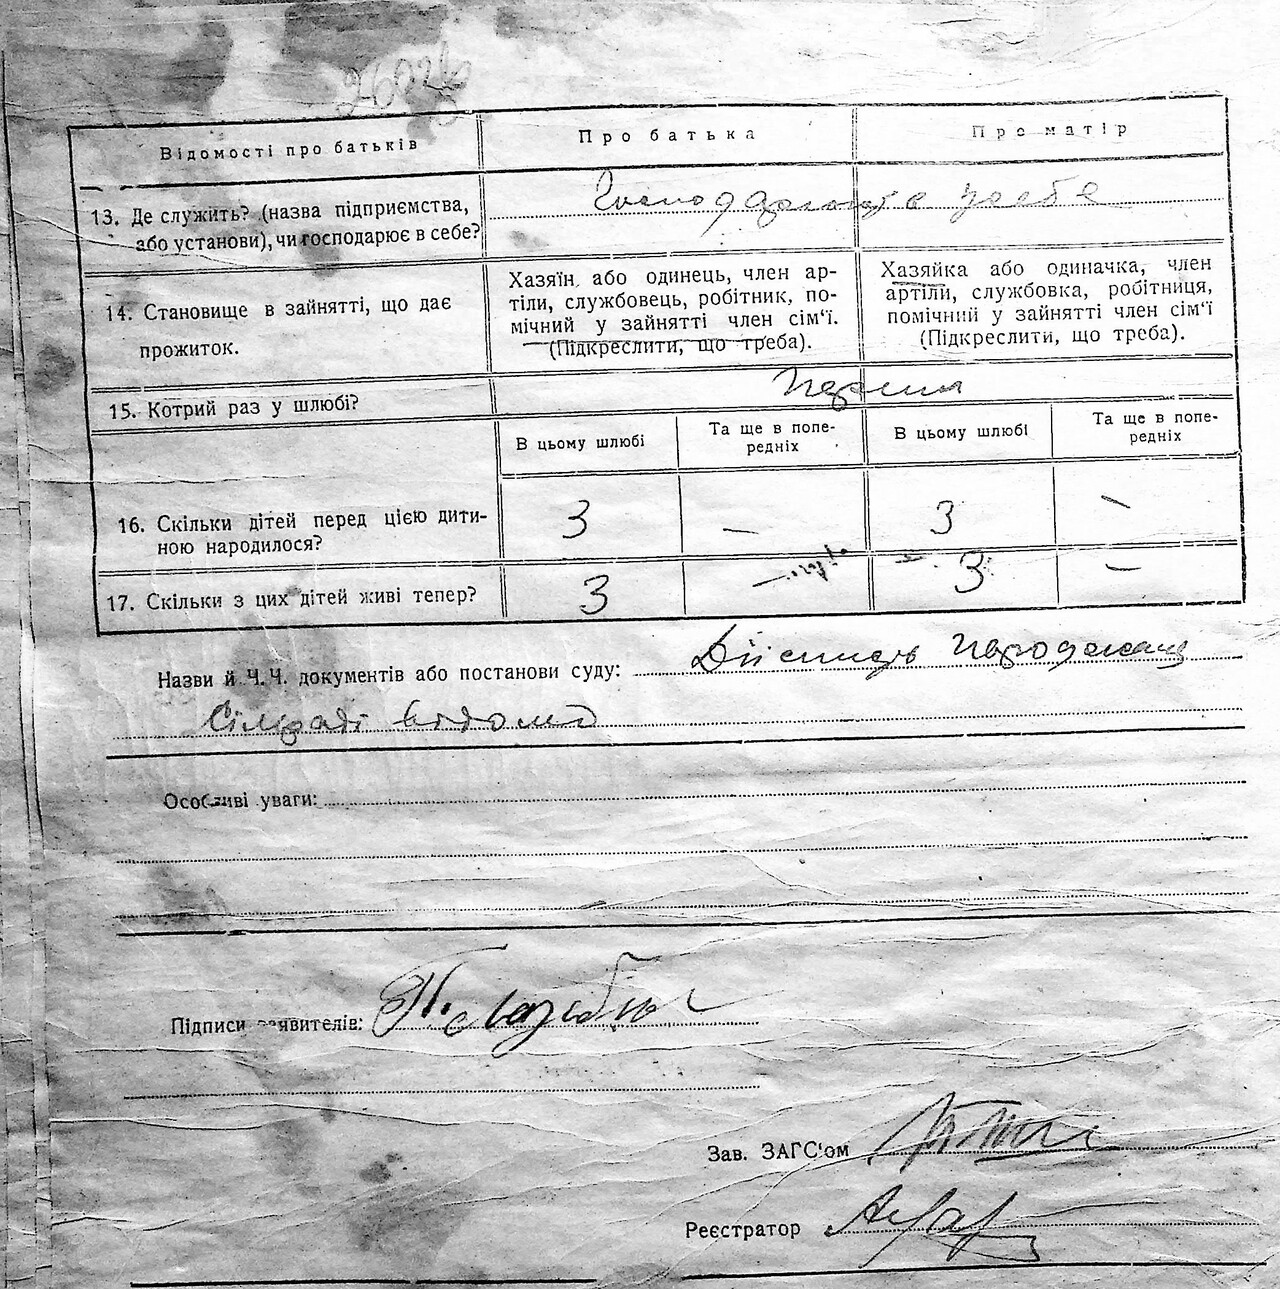 Відомості про батьків
Про батька
Про матір
13. Де служить? (назва підприємства,
або установи), чи господарює в себе?
Господарюють в себе
14. Становище в зайнятті, що дає
прожиток.
Хазяїн або одинець, член ар-
тіли, службовець, робітник, по-
мічний у зайнятті член сім‘ї.
(Підкреслити, що треба).
Хазяйка або одиначка, член
артіли, службовка, робітниця,
помічний у зайнятті член сім‘ї
(Підкреслити, що треба).
15. Котрий раз у шлюбі?
Перший
В цьому шлюбі
Та ще в попе-
редніх
В цьому шлюбі
Та ще в попе-
редніх
16. Скільки дітей перед цією дити-
ною народилося?
3 — 3 —
17. Скільки з цих дітей живі тепер?
3 — 3 —
Назви й Ч.Ч. документів або постанови суду: Дійсність народження
сільраді відомо
Особливі уваги:
Підписи заявителів:
Зав. ЗАГС‘ом
Реєстратор